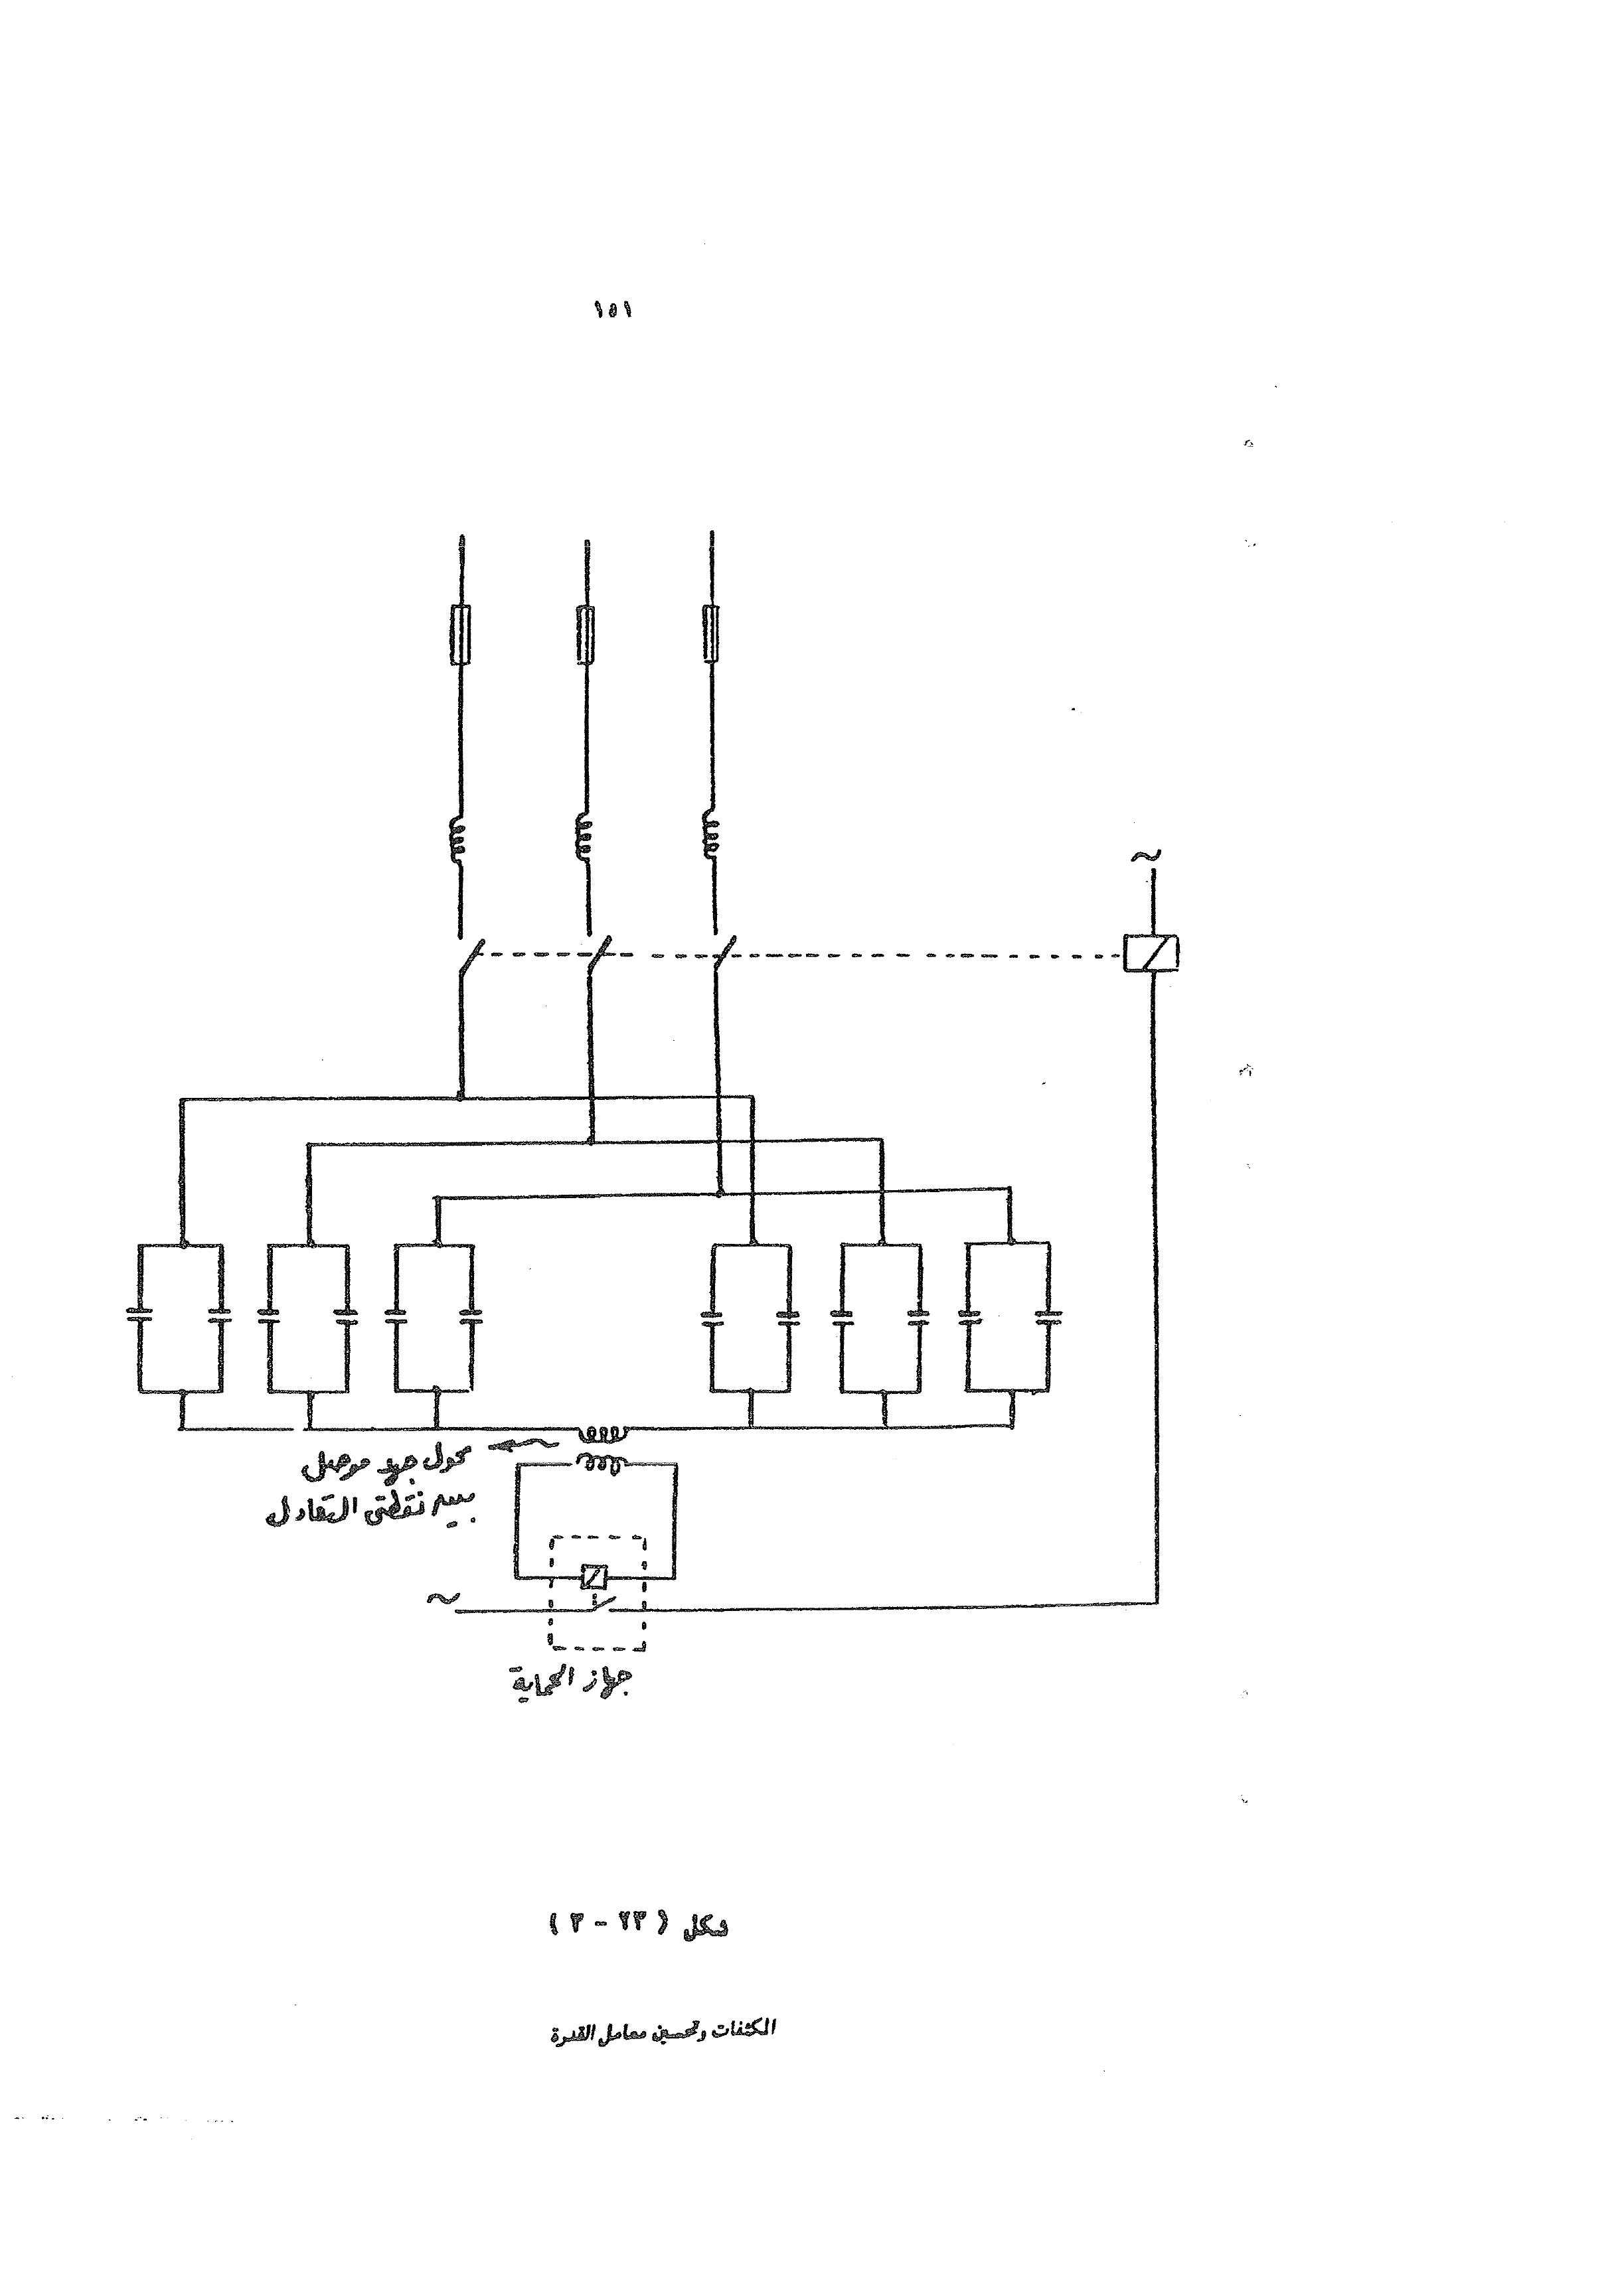 ١٥١
~
محول جهد موصل
بين نقطتى التعادل
~
جهاز الحماية
شكل ( ٢٣ - ٣ )
المكثفات وتحسين معامل القدرة